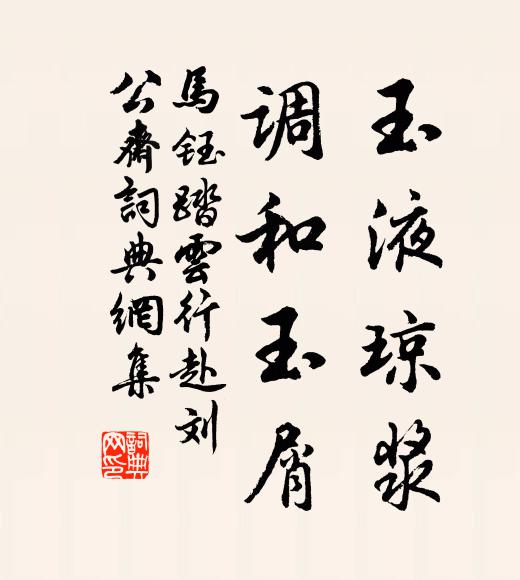 玉液琼漿
調和玉屑
馬鈺踏雲行赴刘
公齋詞典網集
詞典
网印